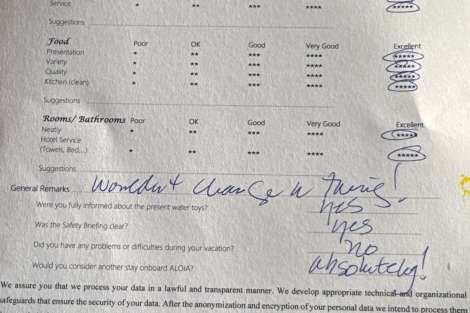 Service * ** *** **** *****
Suggestions
Food Poor OK Good Very Good Excellent
Presentation * ** *** **** *****
Variety * ** *** **** *****
Quality * ** *** **** *****
Kitchen (clean) * ** *** **** *****
Suggestions
Rooms/ Bathrooms Poor OK Good Very Good Excellent
Neatly * ** *** **** *****
Hotel Service
(Towels, Bed...) * ** *** **** *****
Suggestions
General Remarks .... Wouldn't change a thing!
Were you fully informed about the present water toys? yes
Was the Safety Briefing clear? yes
Did you have any problems or difficulties during your vacation? no
Would you consider another stay onboard ALOIA? absolutely!
We assure you that we process your data in a lawful and transparent manner. We develop appropriate technical and organizational
safeguards that ensure the security of your data. After the anonymization and encryption of your personal data we intend to process them